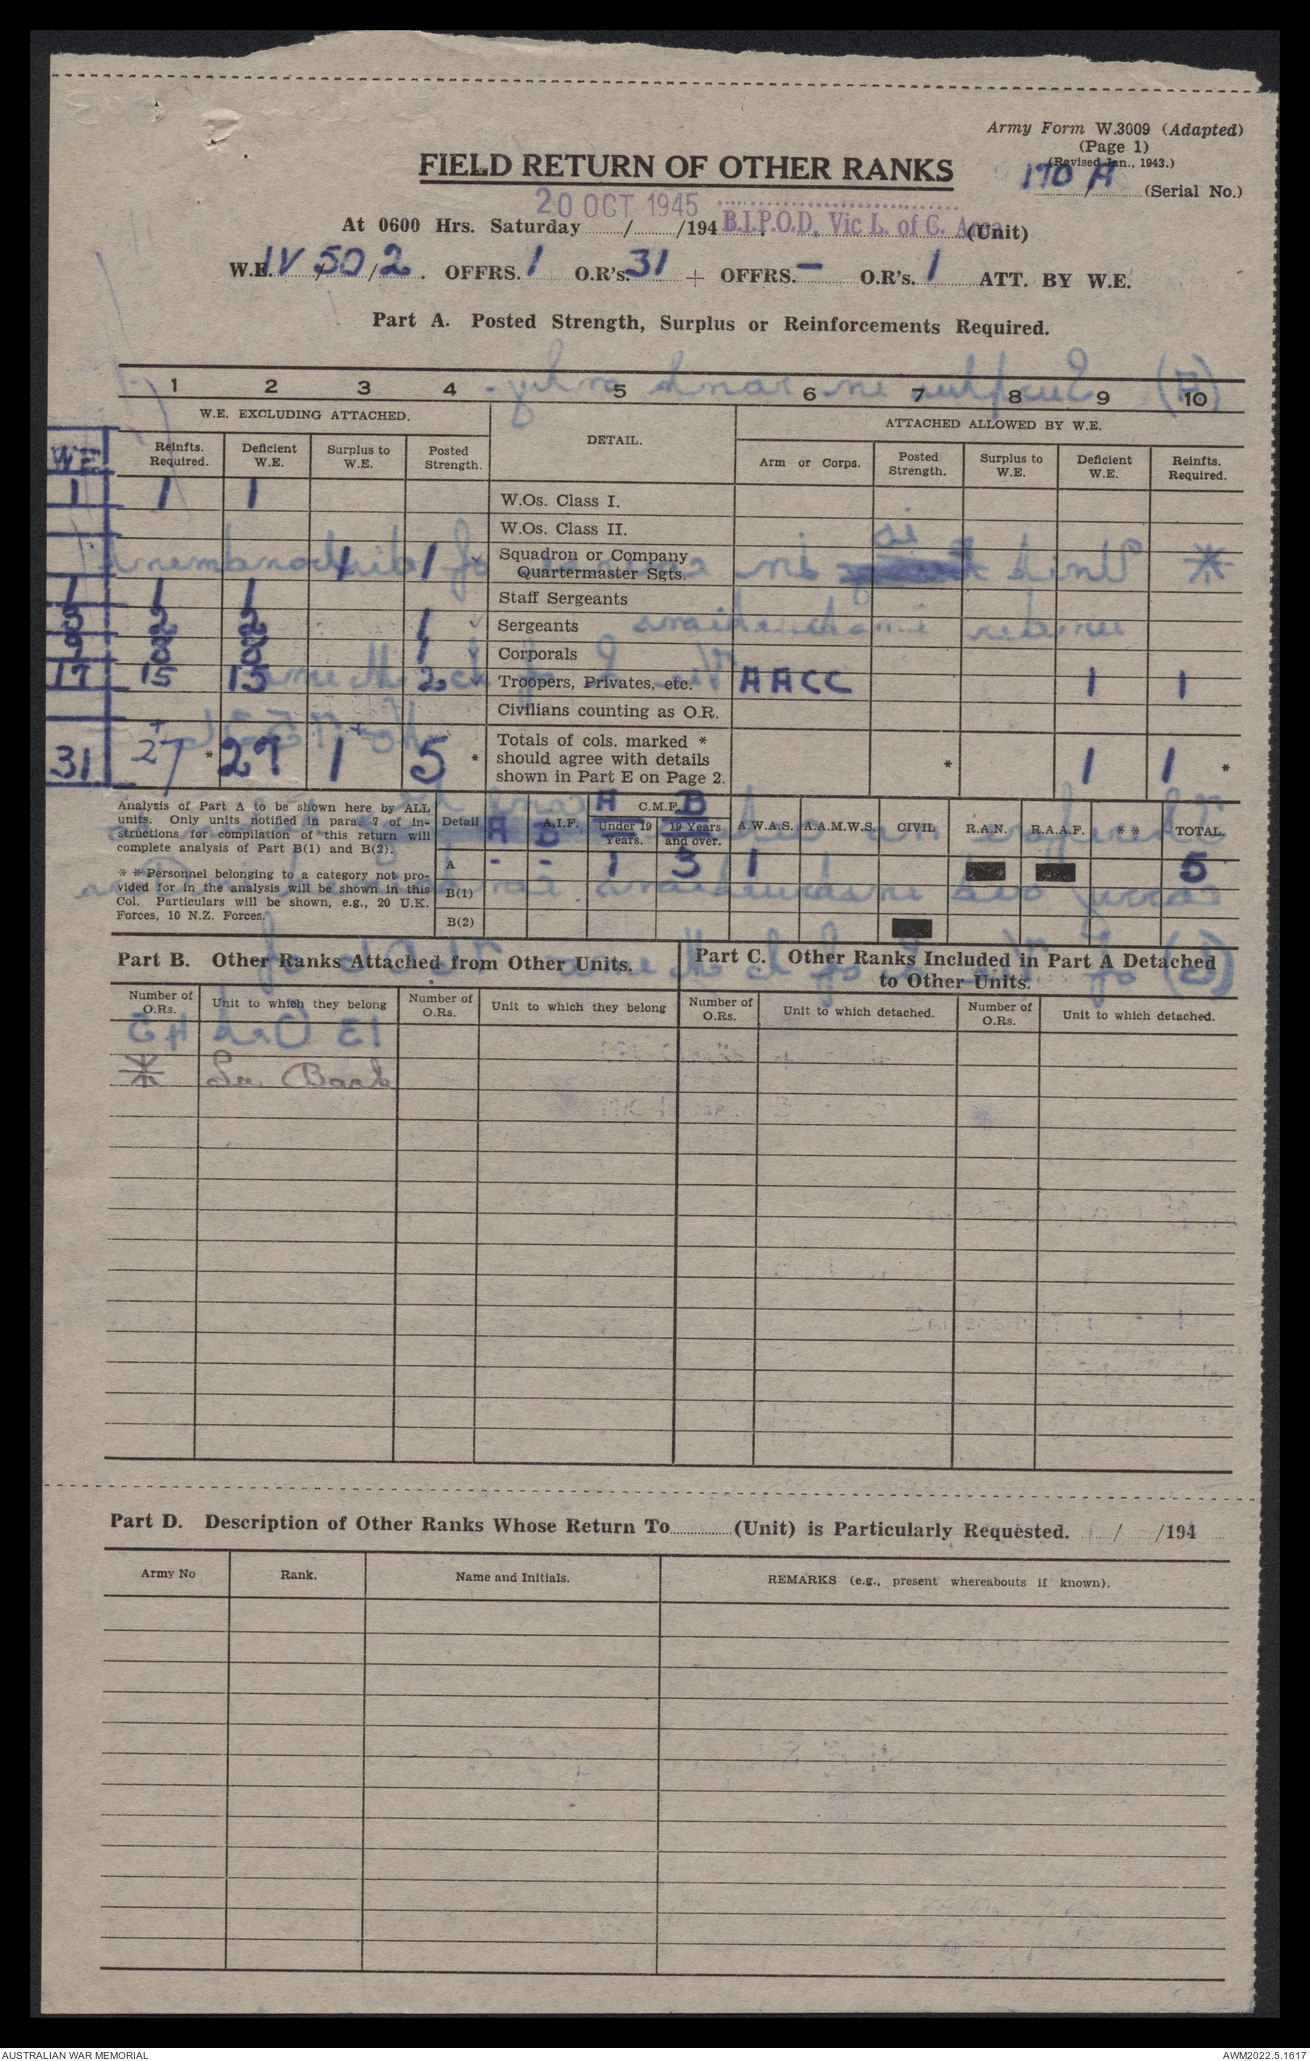 Army Form W.3009 (Adapted)
(Page 1)
(Revised Jan., 1943.)
170 A (Serial No.)
FIELD RETURN OF OTHER RANKS
20 OCT 1945
At 0600 Hrs. Saturday / /194 B.I.P.O.D, Vic L. of C. Area (Unit)
W.E. IV / 50 / 2 . OFFRS. 1 O.R's. 31 + OFFRS. - O.R's. 1 ATT. BY W.E.
Part A. Posted Strength, Surplus or Reinforcements Required.
1 2 3 4 5 6 7 8 9 10
W.E. EXCLUDING ATTACHED. DETAIL. ATTACHED ALLOWED BY W.E.
WE Reinfts. Required. Deficient W.E. Surplus to W.E. Posted Strength. Arm or Corps. Posted Strength. Surplus to W.E. Deficient W.E. Reinfts. Required.
1 1 1 W.Os. Class I.
W.Os. Class II.
1 1 Squadron or Company
Quartermaster Sgts.
1 1 1 Staff Sergeants
3 2 2 1 Sergeants
9 8 8 1 Corporals
17 15 15 2 Troopers, Privates, etc. AACC 1 1
Civilians counting as O.R.
31 27 * 27 1 5 * Totals of cols. marked *
should agree with details
shown in Part E on Page 2. * 1 1 *
Analysis of Part A to be shown here by ALL
units. Only units notified in para. 7 of in-
structions for compilation of this return will
complete analysis of Part B(1) and B(2).
* * Personnel belonging to a category not pro-
vided for in the analysis will be shown in this
Col. Particulars will be shown, e.g., 20 U.K.
Forces, 10 N.Z. Forces.
Detail A B A.I.F. A C.M.F. B Under 19 Years. 19 Years and over. A.W.A.S. A.A.M.W.S. CIVIL R.A.N. R.A.A.F. * * TOTAL.
A - - 1 3 1 5
B(1)
B(2)
Part B. Other Ranks Attached from Other Units.
Part C. Other Ranks Included in Part A Detached
to Other Units.
Number of O.Rs. Unit to which they belong Number of O.Rs. Unit to which they belong Number of O.Rs. Unit to which detached. Number of O.Rs. Unit to which detached.
Back
Part D. Description of Other Ranks Whose Return To (Unit) is Particularly Requested. / /194
Army No Rank. Name and Initials. REMARKS (e.g., present whereabouts if known).
AUSTRALIAN WAR MEMORIAL
AWM2022.5.1617